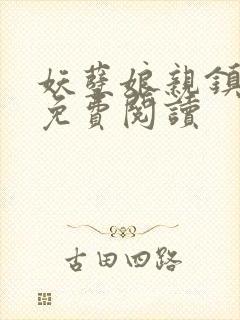 妖孽娘親鎮
免費閱讀
古田四路